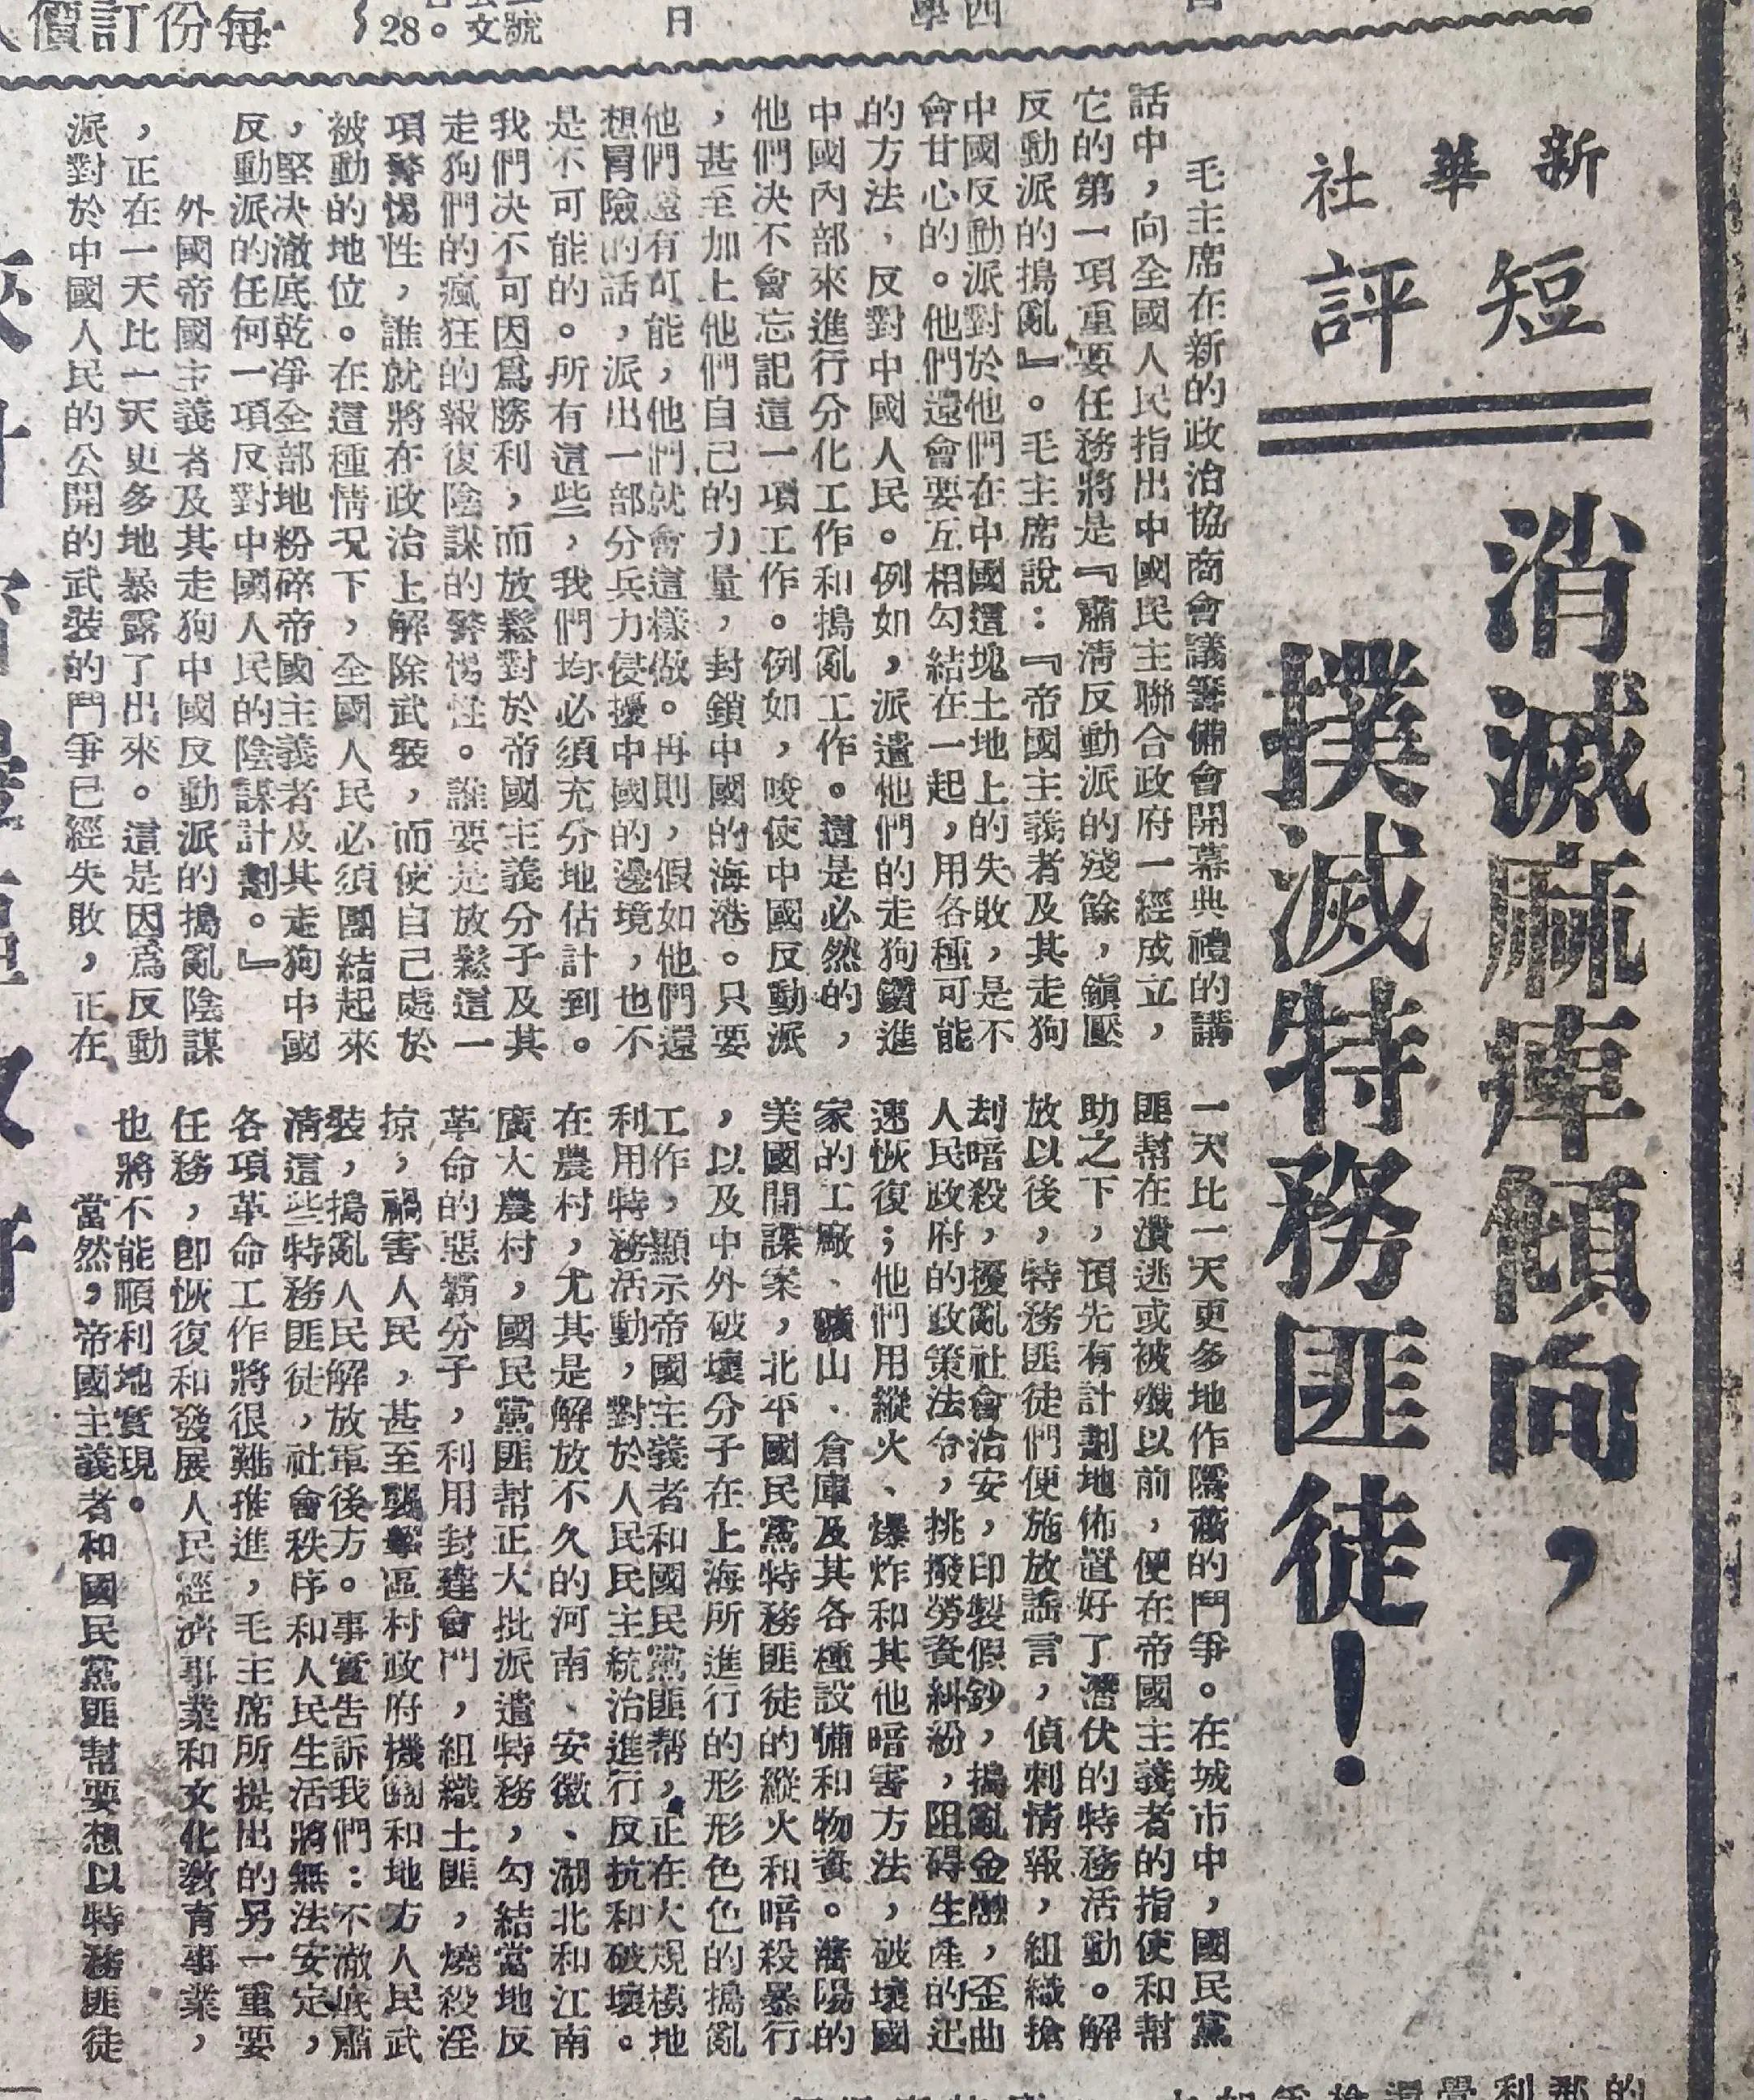 每份訂價
28。
文號
日
新華社
短評
消滅麻痺傾向，
撲滅特務匪徒！
毛主席在新的政治協商會議籌備會開幕典禮的講
話中，向全國人民指出中國民主聯合政府一經成立，
它的第一項重要任務將是『肅清反動派的殘餘，鎭壓
反動派的搗亂』。毛主席說：『帝國主義者及其走狗
中國反動派對於他們在中國這塊土地上的失敗，是不
會甘心的。他們還會要互相勾結在一起，用各種可能
的方法，反對中國人民。例如，派遣他們的走狗鑽進
中國內部來進行分化工作和搗亂工作。這是必然的，
他們决不會忘記這一項工作。例如，唆使中國反動派
，甚至加上他們自己的力量，封鎖中國的海港。只要
他們還有可能，他們就會這樣做。再則，假如他們還
想冒險的話，派出一部分兵力侵擾中國的邊境，也不
是不可能的。所有這些，我們均必須充分地估計到。
我們决不可因爲勝利，而放鬆對於帝國主義分子及其
走狗們的瘋狂的報復陰謀的警惕性。誰要是放鬆這一
項警惕性，誰就將在政治上解除武裝，而使自己處於
被動的地位。在這種情况下，全國人民必須團結起來
，堅决澈底乾凈全部地粉碎帝國主義者及其走狗中國
反動派的任何一項反對中國人民的陰謀計劃。』
外國帝國主義者及其走狗中國反動派的搗亂陰謀
，正在一天比一天更多地暴露了出來。這是因爲反動
派對於中國人民的公開的武裝的鬥爭已經失敗，正在
一天比一天更多地作隱蔽的鬥爭。在城市中，國民黨
匪幫在潰逃或被殲以前，便在帝國主義者的指使和幫
助之下，預先有計劃地佈置好了潛伏的特務活動。解
放以後，特務匪徒們便施放謠言，偵刺情報，組織搶
刦暗殺，擾亂社會治安，印製假鈔，搗亂金融，歪曲
人民政府的政策法令，挑撥勞資糾紛，阻碍生產的迅
速恢復；他們用縱火、爆炸和其他暗害方法，破壞國
家的工廠、礦山、倉庫及其各種設備和物資。瀋陽的
美國間諜案，北平國民黨特務匪徒的縱火和暗殺暴行
，以及中外破壞分子在上海所進行的形形色色的搗亂
工作，顯示帝國主義者和國民黨匪幫，正在大規模地
利用特務活動，對於人民民主統治進行反抗和破壞。
在農村，尤其是解放不久的河南、安徽、湖北和江南
廣大農村，國民黨匪幫正大批派遣特務，勾結當地反
革命的惡霸分子，利用封建會門，組織土匪，燒殺淫
掠，禍害人民，甚至襲擊區村政府機關和地方人民武
裝，搗亂人民解放軍後方。事實告訴我們：不澈底肅
清這些特務匪徒，社會秩序和人民生活將無法安定，
各項革命工作將很難推進，毛主席所提出的另一重要
任務，卽恢復和發展人民經濟事業和文化教育事業，
也將不能順利地實現。
當然，帝國主義者和國民黨匪幫要想以特務匪徒